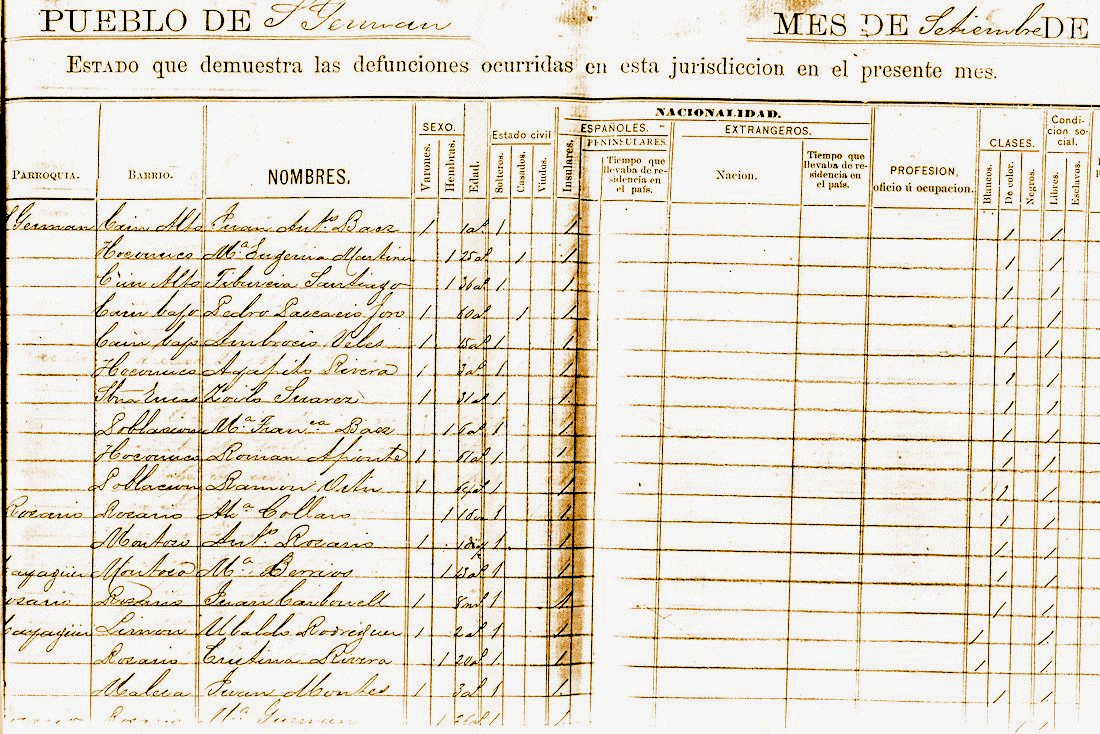 PUEBLO DE S. German MES DE Setiembre DE
ESTADO que demuestra las defunciones ocurridas en esta jurisdiccion en el presente mes.
NACIONALIDAD.
SEXO. ESPAÑOLES. EXTRANGEROS. CLASES. Condicion social.
Estado civil PENINSULARES.
PARROQUIA. BARRIO. NOMBRES. Varones. Hembras. Edad. Solteros. Casados. Viudos. Insulares. Tiempo que llevaba de residencia en el país. Nacion. Tiempo que llevaba de residencia en el país. PROFESION, oficio ú ocupacion. Blancos. De color. Negros. Libres. Esclavos.
German Cain Alto Juan Ant.º Baez 1 1 a.s 1 1 1 1
Hoconuco M.ª Eugenia Martinez 1 25 a.s 1 1 1 1
Cain Alto Tiburcia Santiago 1 36 a.s 1 1 1 1
Cain bajo Pedro Toro 1 60 a.s 1 1 1 1
Cain bajo Ambrocio Veles 1 15 a.s 1 1 1 1
Hoconuco Agapito Rivera 1 3 a.s 1 1 1 1
Zoilo Suarez 1 31 a.s 1 1 1 1
Poblacion M.ª Fran.ca Baez 1 6 a.s 1 1 1 1
Hoconuco Roman Aponte 1 61 a.s 1 1 1 1
Poblacion Ramon 1 1 1 1 1
Rosario Rosario M.ª Collaso 1 1 1 1 1
Montoso Ant.º Rosario 1 1 1 1 1
Montoso M.ª Berrios 1 13 a.s 1 1 1 1
osario Rosario Juan Carbonell 1 8 m.s 1 1 1 1
ayaguez Limon Ubaldo Rodriguez 1 2 a.s 1 1 1 1
Rosario Cristina Rivera 1 20 a.s 1 1 1 1
Juan Montes 1 3 a.s 1 1 1 1
Rosario M.ª 1 1 1 1 1